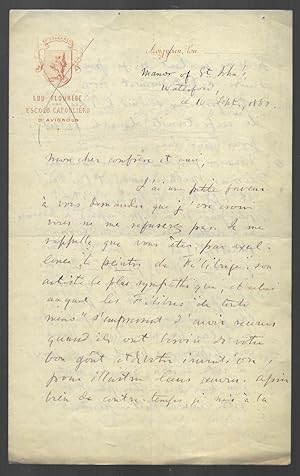 LOU FLOUREGE
ESCOLO CAPOULIERO
D'AVIGNOUN
Manor of St John's,
Waterford
le 10 Sept. 188
Mon cher confrère et ami,
J'ai une petite faveur
à vous demander que j'ose croire
vous ne me refuserez pas. Je me
rappelle que vous êtes, par excel-
lence, le peintre du Félibrige, son
artiste le plus sympathique, et celui
auquel les Félibres de toute
s'empressent d'avoir recours
quand ils ont besoin de votre
bon goût et de votre invention,
pour illustrer leurs œuvres. Après
bien de contre-temps, je suis à la